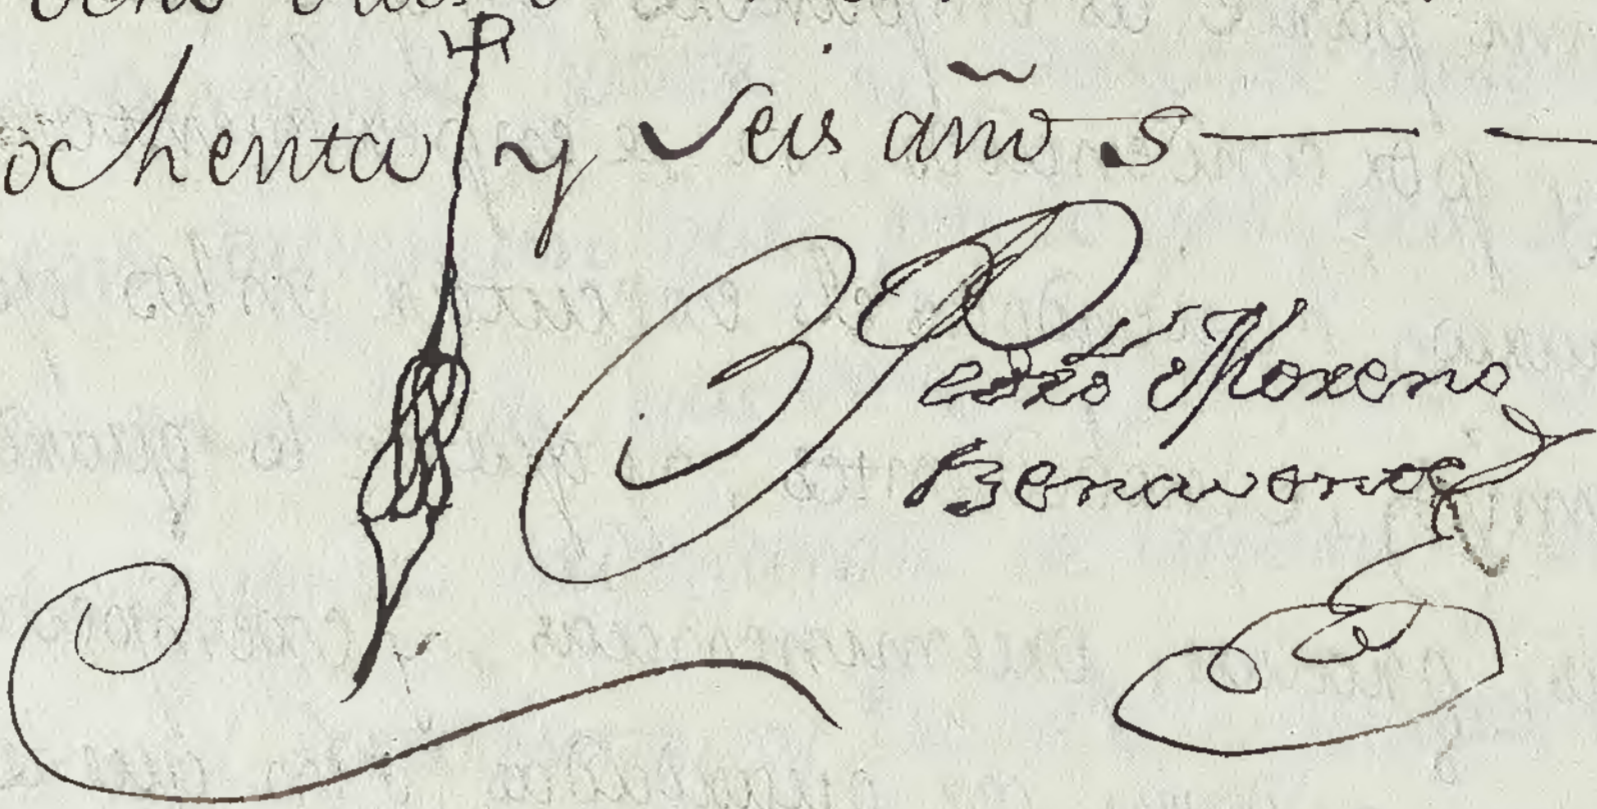 ochenta y seis años
Pedro Moreno
Benavente